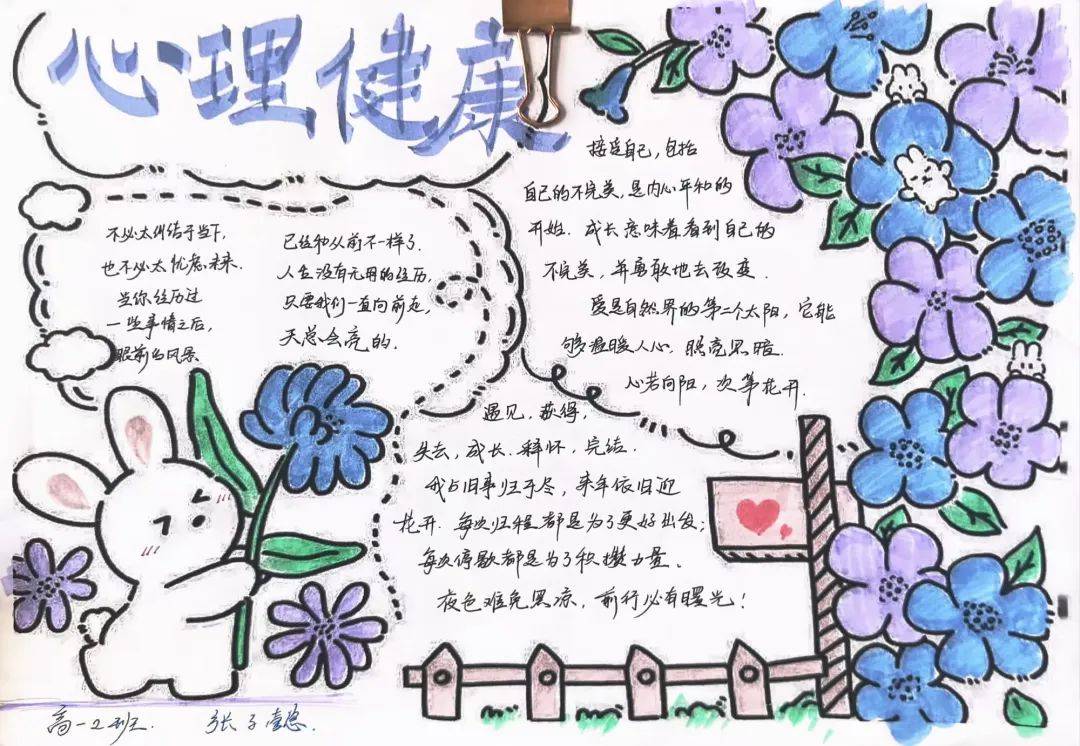 心理健康
不必太纠结于当下,
也不必太忧虑未来.
当你经历过
一些事情之后,
眼前的风景
已经和从前不一样了.
人生没有无用的经历,
只要我们一直向前走,
天总会亮的.
接受自己,包括
自己的不完美,是内心平和的
开始. 成长意味着看到自己的
不完美,并勇敢地去改变.
爱是自然界的第二个太阳,它能
够温暖人心,照亮黑暗.
心若向阳,次第花开.
遇见,获得,
失去,成长.释怀,完结.
我与旧事归于尽,来年依旧迎
花开.每次归程都是为了更好出发;
每次停歇都是为了积攒力量.
夜色难免黑凉,前行必有曙光!
高一2班.
张子